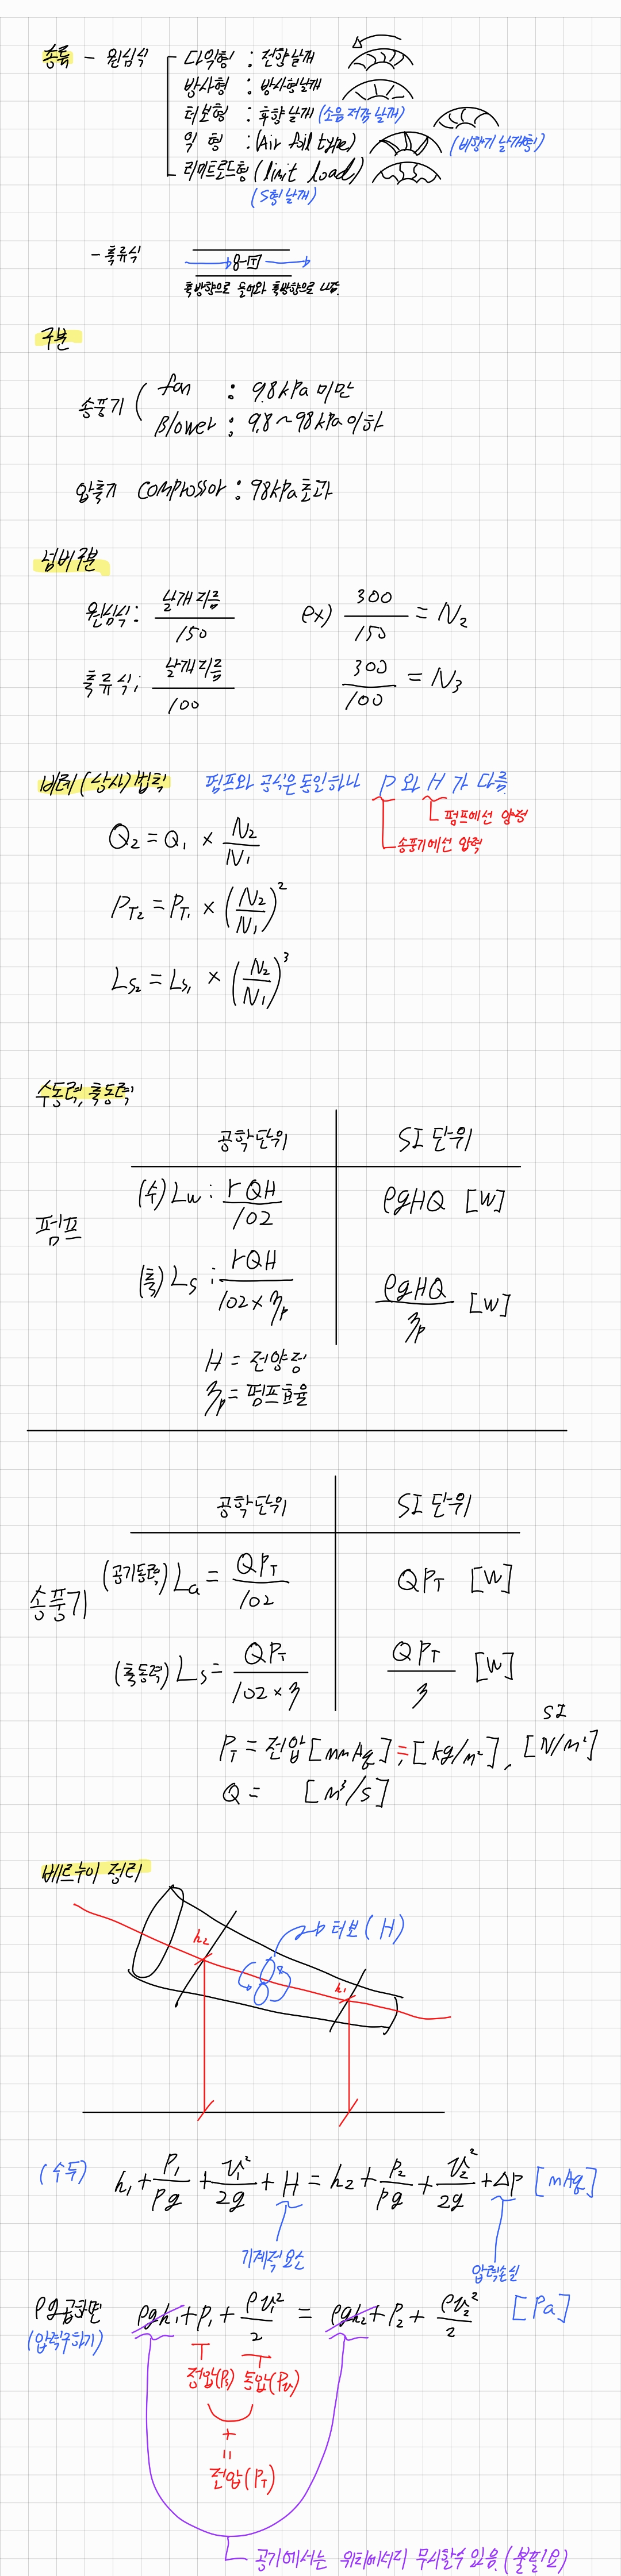 종류 - 원심식 - 다익형 : 전향날개
방사형 : 방사형날개
터보형 : 후향날개 (소음 저감 날개)
익 형 : (Air foil type) (비행기 날개형)
리미트로드형 (limit load)
(S형 날개)
- 축류식
축방향으로 들어와 축방향으로 나감.
구분
송풍기 ( fan : 9.8kPa 미만
Blower : 9.8 ~ 98kPa 이하
압축기 compressor : 98kPa 초과
넘버구분
원심식 : 날개지름/150 ex) 300/150 = N2
축류식 : 날개지름/100 300/100 = N3
비례(상사)법칙 펌프와 공식은 동일하나 P 와 H 가 다름
펌프에선 양정
송풍기에선 압력
Q2 = Q1 × N2/N1
PT2 = PT1 × (N2/N1)²
LS2 = LS1 × (N2/N1)³
수동력, 축동력
공학단위 SI 단위
펌프
(수) Lw : rQH/102 ρgHQ [W]
(축) Ls : rQH/102×ηp ρgHQ/ηp [W]
H = 전양정
ηp = 펌프효율
공학단위 SI 단위
송풍기
(공기동력) La = QPT/102 QPT [W]
(축동력) Ls = QPT/102×η QPT/η [W]
SI
PT = 전압 [mmAq] = [kg/m²], [N/m²]
Q = [m³/s]
베르누이 정리
터보 (H)
h2
h1
(수두) h1 + P1/ρg + v1²/2g + H = h2 + P2/ρg + v2²/2g + ΔP [mAq]
기계적요소 압력손실
ρg 곱하면 ρgh1 + P1 + ρv1²/2 = ρgh2 + P2 + ρv2²/2 [Pa]
(압력구하기)
정압(Ps) 동압(Pv)
+
=
전압(PT)
공기에서는 위치에너지 무시할수 있음. (불필요)